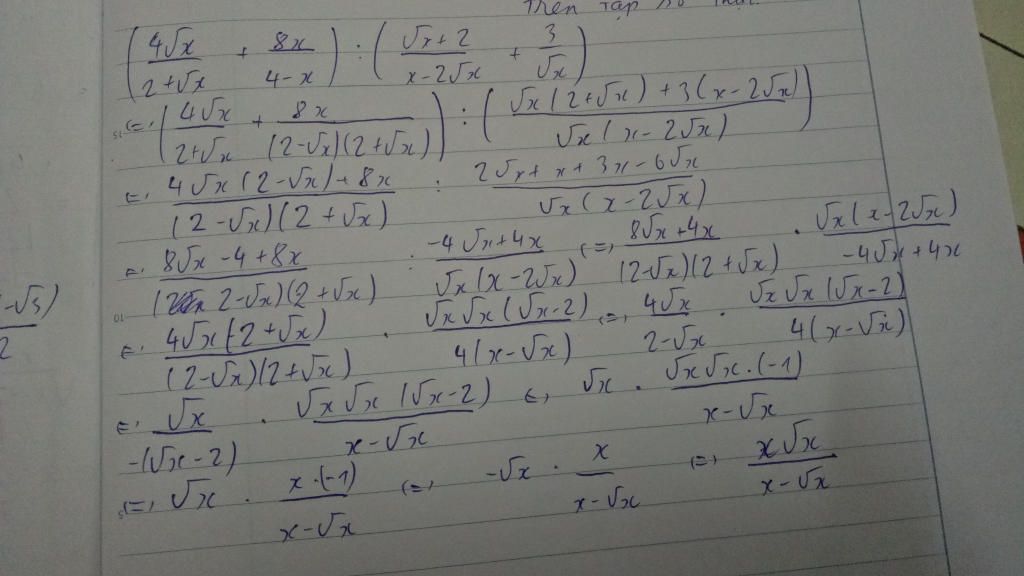 (4√x/(2+√x) + 8x/(4-x)) : ((√x+2)/(x-2√x) + 3/√x)
<=> (4√x/(2+√x) + 8x/((2-√x)(2+√x))) : ((√x(2+√x)+3(x-2√x))/(√x(x-2√x)))
<=> (4√x(2-√x)+8x)/((2-√x)(2+√x)) : (2√x+x+3x-6√x)/(√x(x-2√x))
<=> (8√x-4+8x)/((2-√x)(2+√x)) : (-4√x+4x)/(√x(x-2√x)) <=> (8√x+4x)/((2-√x)(2+√x)) . (√x(x-2√x))/(-4√x+4x)
<=> (4√x(2+√x))/((2-√x)(2+√x)) . (√x√x(√x-2))/(4(x-√x)) <=> 4√x/(2-√x) . (√x√x(√x-2))/(4(x-√x))
<=> √x/(-(√x-2)) . (√x√x(√x-2))/(x-√x) <=> √x . (√x√x.(-1))/(x-√x)
<=> √x . (x.(-1))/(x-√x) <=> -√x . x/(x-√x) <=> x√x/(x-√x)